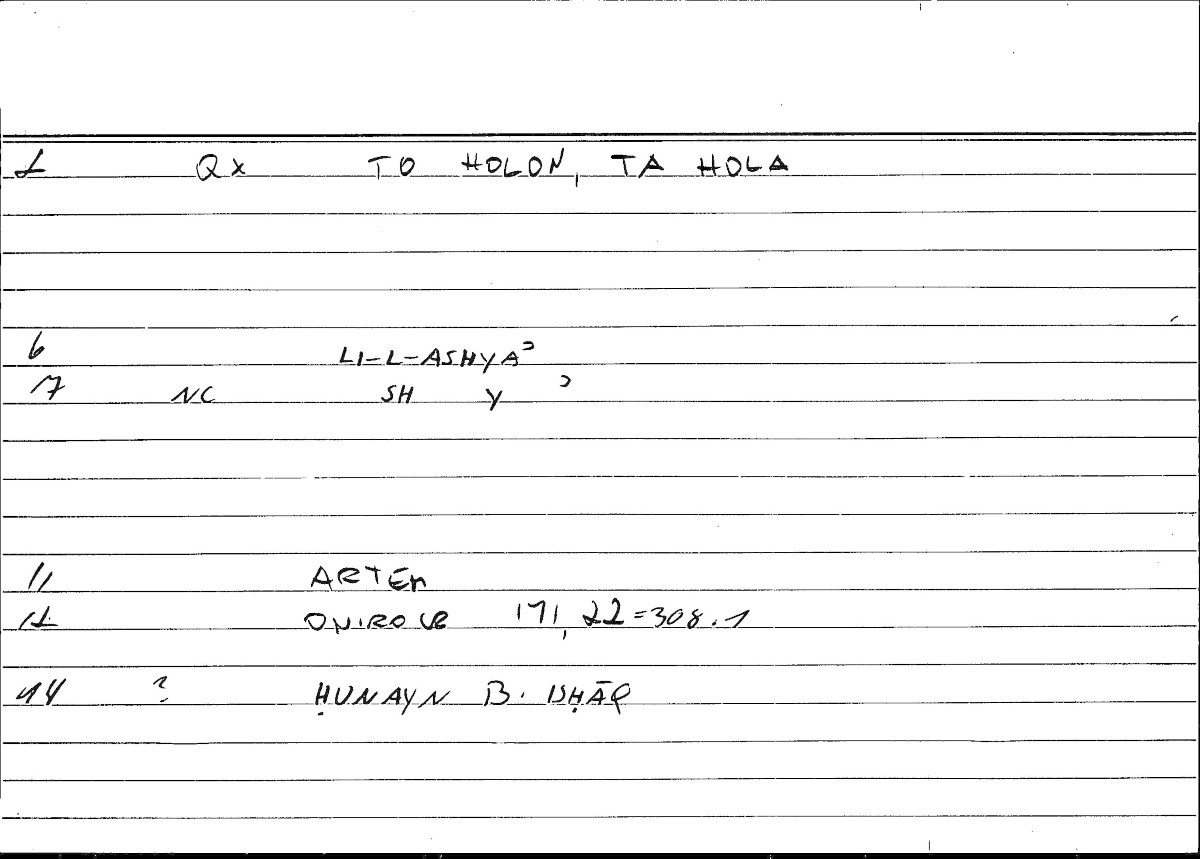 2 Qx TO HOLON, TA HOLA
6 LI-L-ASHYAʾ
7 NC SH Y ʾ
11 ARTEM
12 ONIROCR 171,22=308.1
14 ? ḤUNAYN B. ISḤĀQ